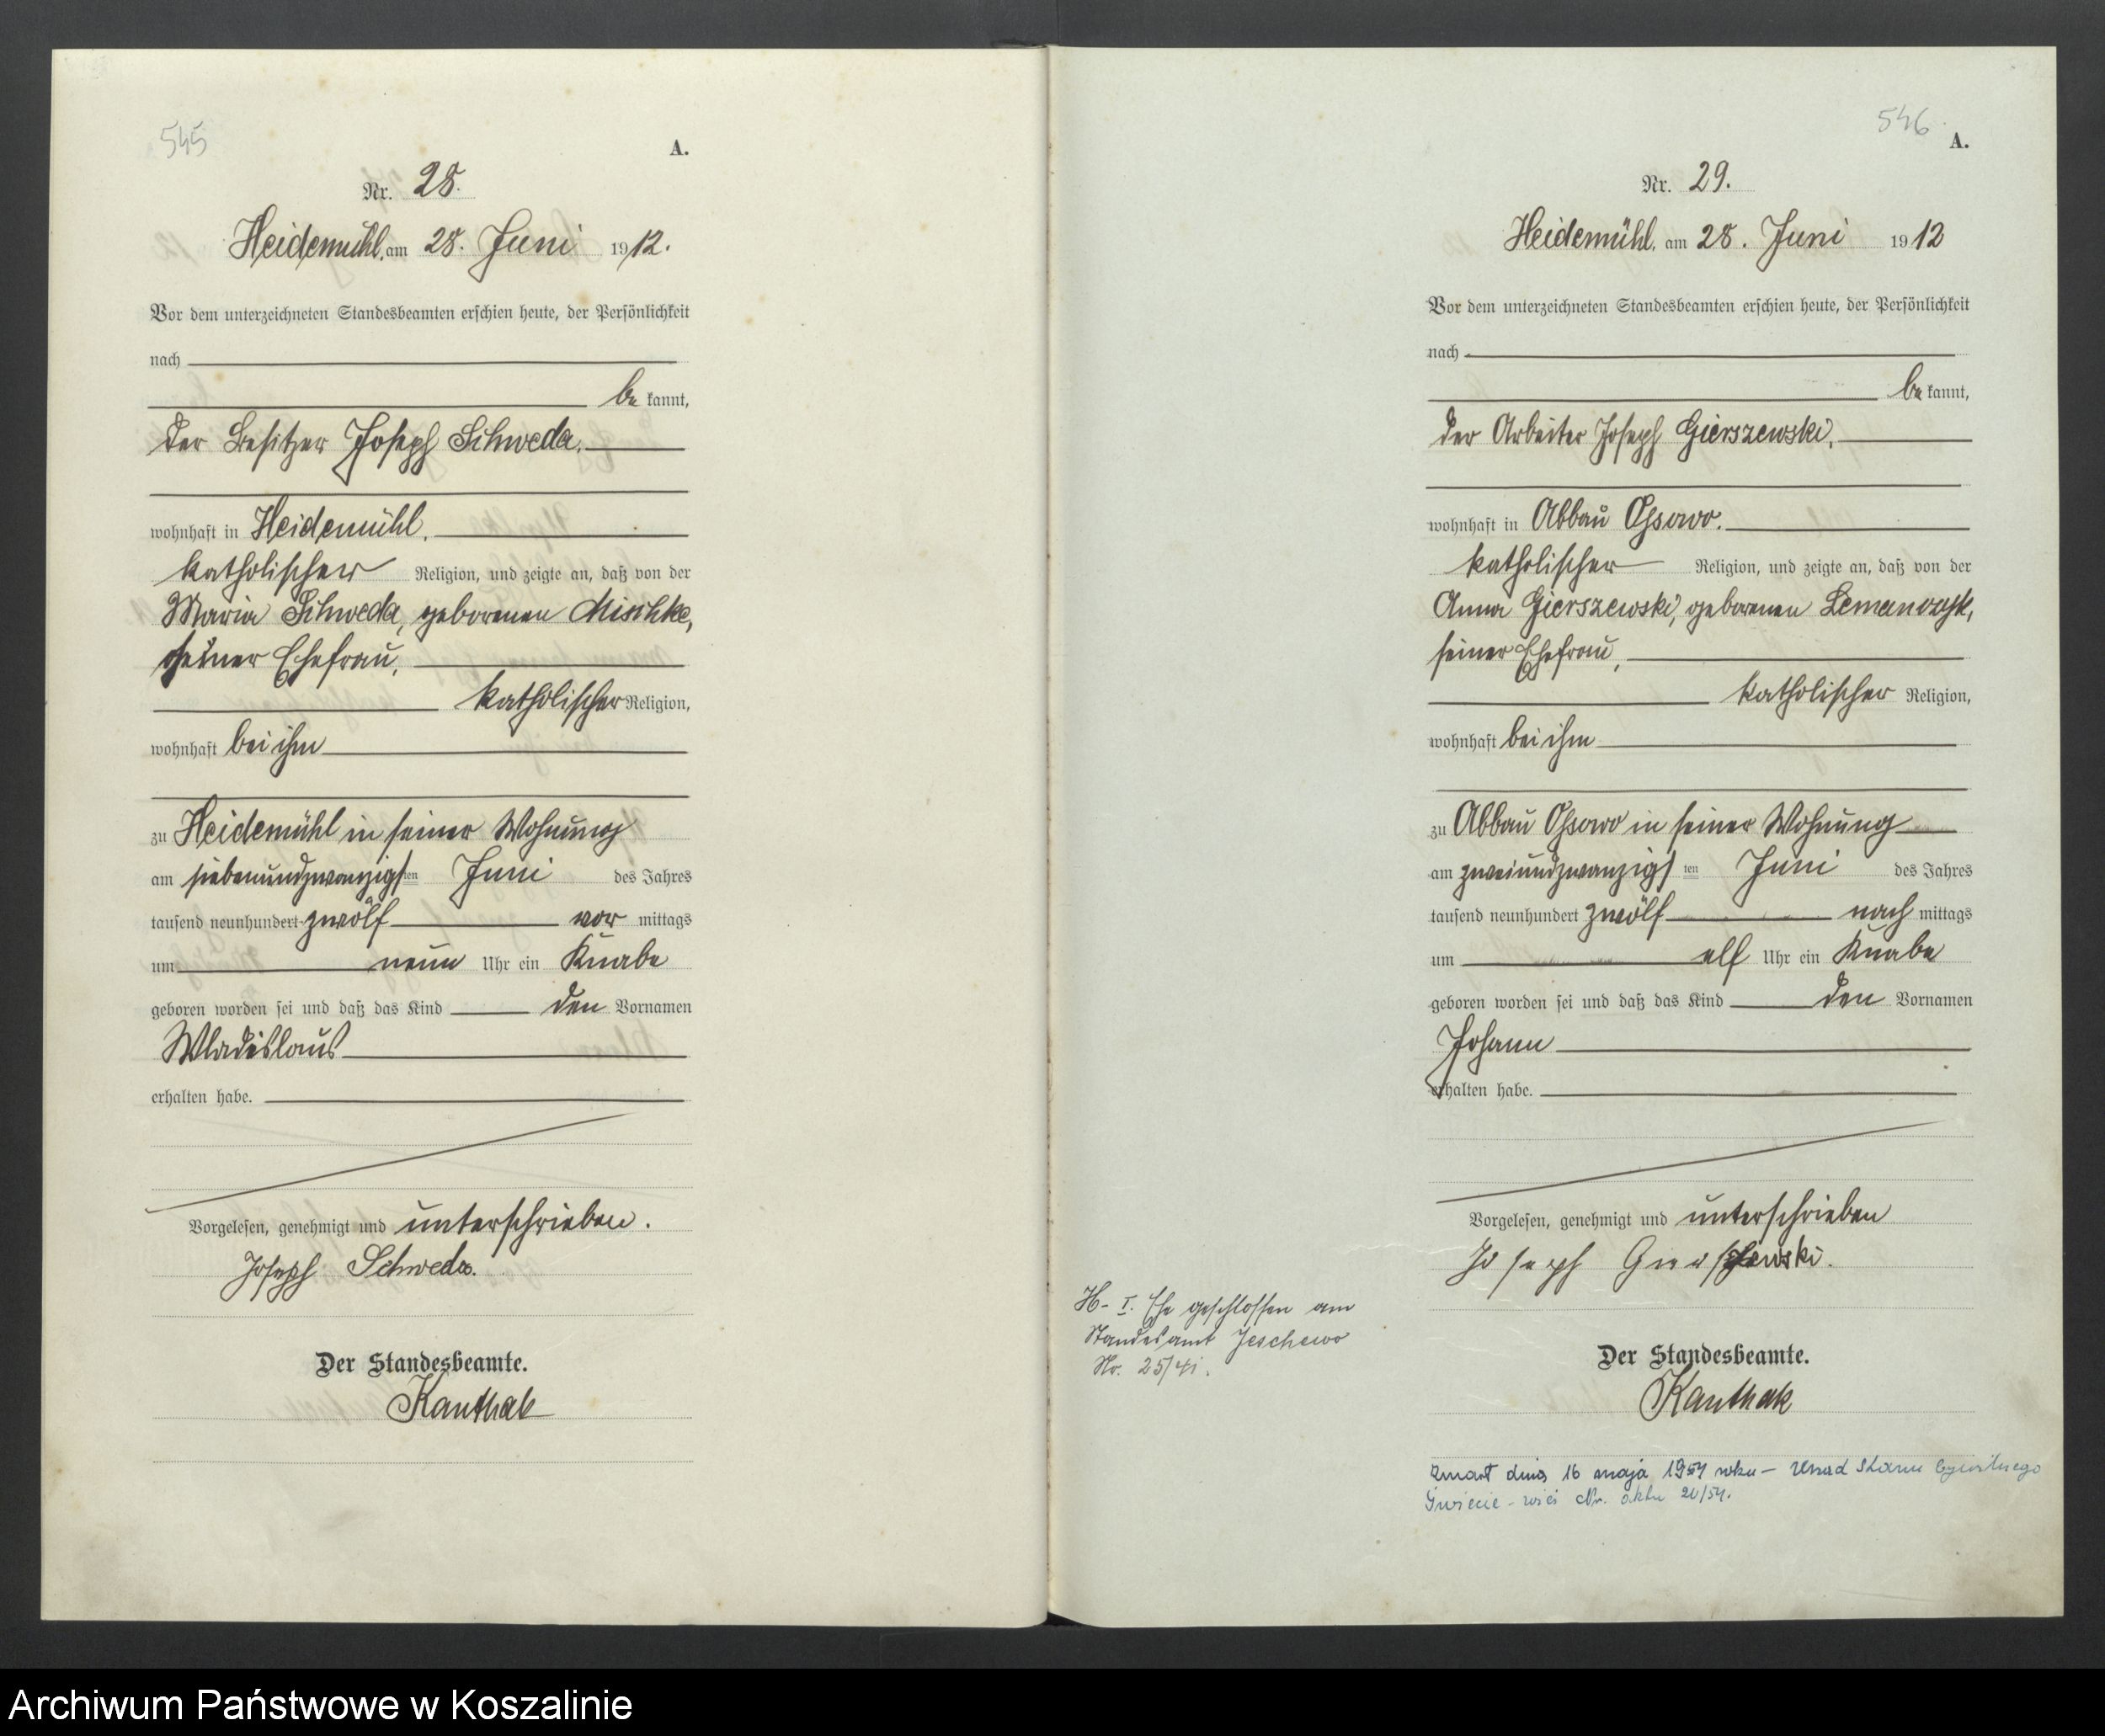 545
A.
Nr. 28.
Heidemühl, am 28. Juni 1912.
Vor dem unterzeichneten Standesbeamten erschien heute, der Persönlichkeit
nach
be kannt,
der Besitzer Joseph Schweda,
wohnhaft in Heidemühl,
katholischer Religion, und zeigte an, daß von der
Maria Schweda, geborenen Mischke,
seiner Ehefrau,
katholischer Religion,
wohnhaft bei ihm
zu Heidemühl in seiner Wohnung
am siebenundzwanzigsten Juni des Jahres
tausend neunhundert zwölf vor mittags
um neun Uhr ein Knabe
geboren worden sei und daß das Kind den Vornamen
Wladislaus
erhalten habe.
Vorgelesen, genehmigt und unterschrieben.
Joseph Schweda.
Der Standesbeamte.
Kanthak
546
A.
Nr. 29.
Heidemühl, am 28. Juni 1912
Vor dem unterzeichneten Standesbeamten erschien heute, der Persönlichkeit
nach
be kannt,
der Arbeiter Joseph Gierszewski,
wohnhaft in Abbau Ossowo,
katholischer Religion, und zeigte an, daß von der
Anna Gierszewski, geborenen Lemanczyk,
seiner Ehefrau,
katholischer Religion,
wohnhaft bei ihm
zu Abbau Ossowo in seiner Wohnung
am zweiundzwanzigsten Juni des Jahres
tausend neunhundert zwölf nach mittags
um elf Uhr ein Knabe
geboren worden sei und daß das Kind den Vornamen
Johann
erhalten habe.
Vorgelesen, genehmigt und unterschrieben
Joseph Gierszewski.
Der Standesbeamte.
Kanthak
H- I. Ehe geschlossen am
Standesamt Jeschewo
No. 25/41.
Zmarł dnia 16 maja 1954 roku – Urząd Stanu Cywilnego
Świecie - wieś Nr. aktu 20/54.
Archiwum Państwowe w Koszalinie